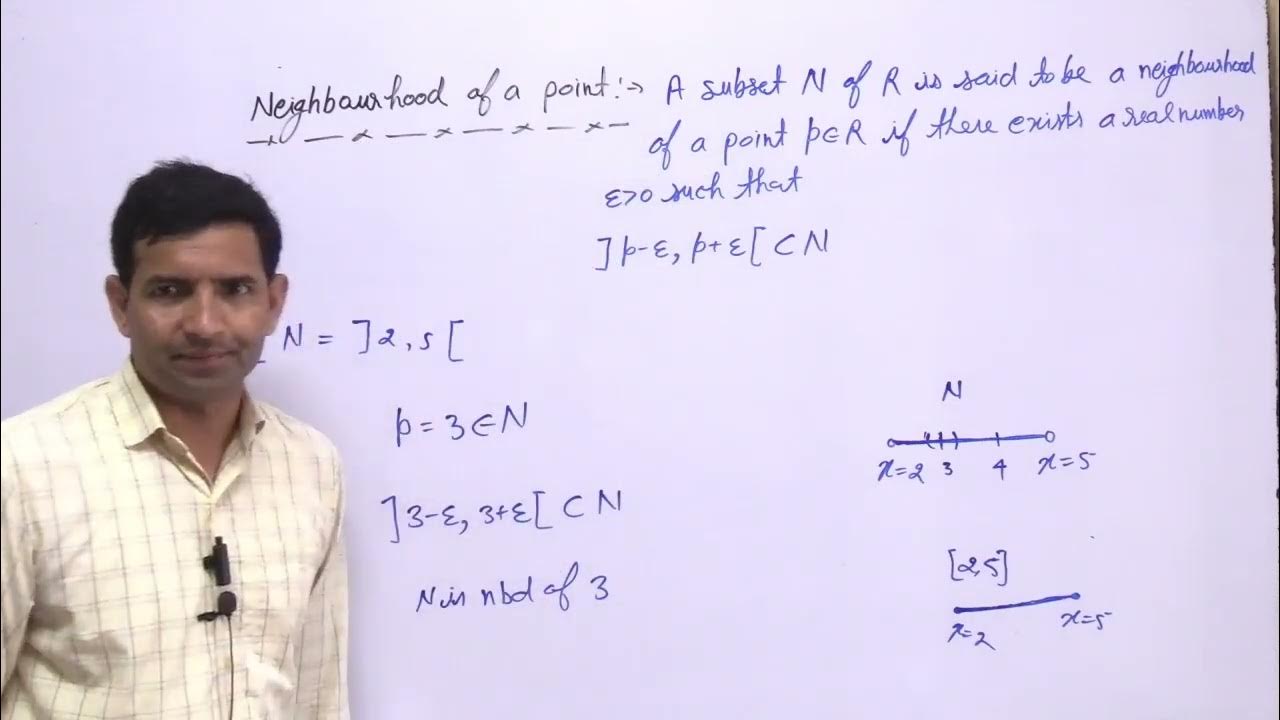 Neighbourhood of a point:→ A subset N of R is said to be a neighbourhood
of a point p∈R if there exists a real number
ε>0 such that
]p-ε, p+ε[ ⊂ N
N = ]2, 5[
p = 3 ∈ N
]3-ε, 3+ε[ ⊂ N
N is nbd of 3
N
x=2 3 4 x=5
[2,5]
x=2 x=5